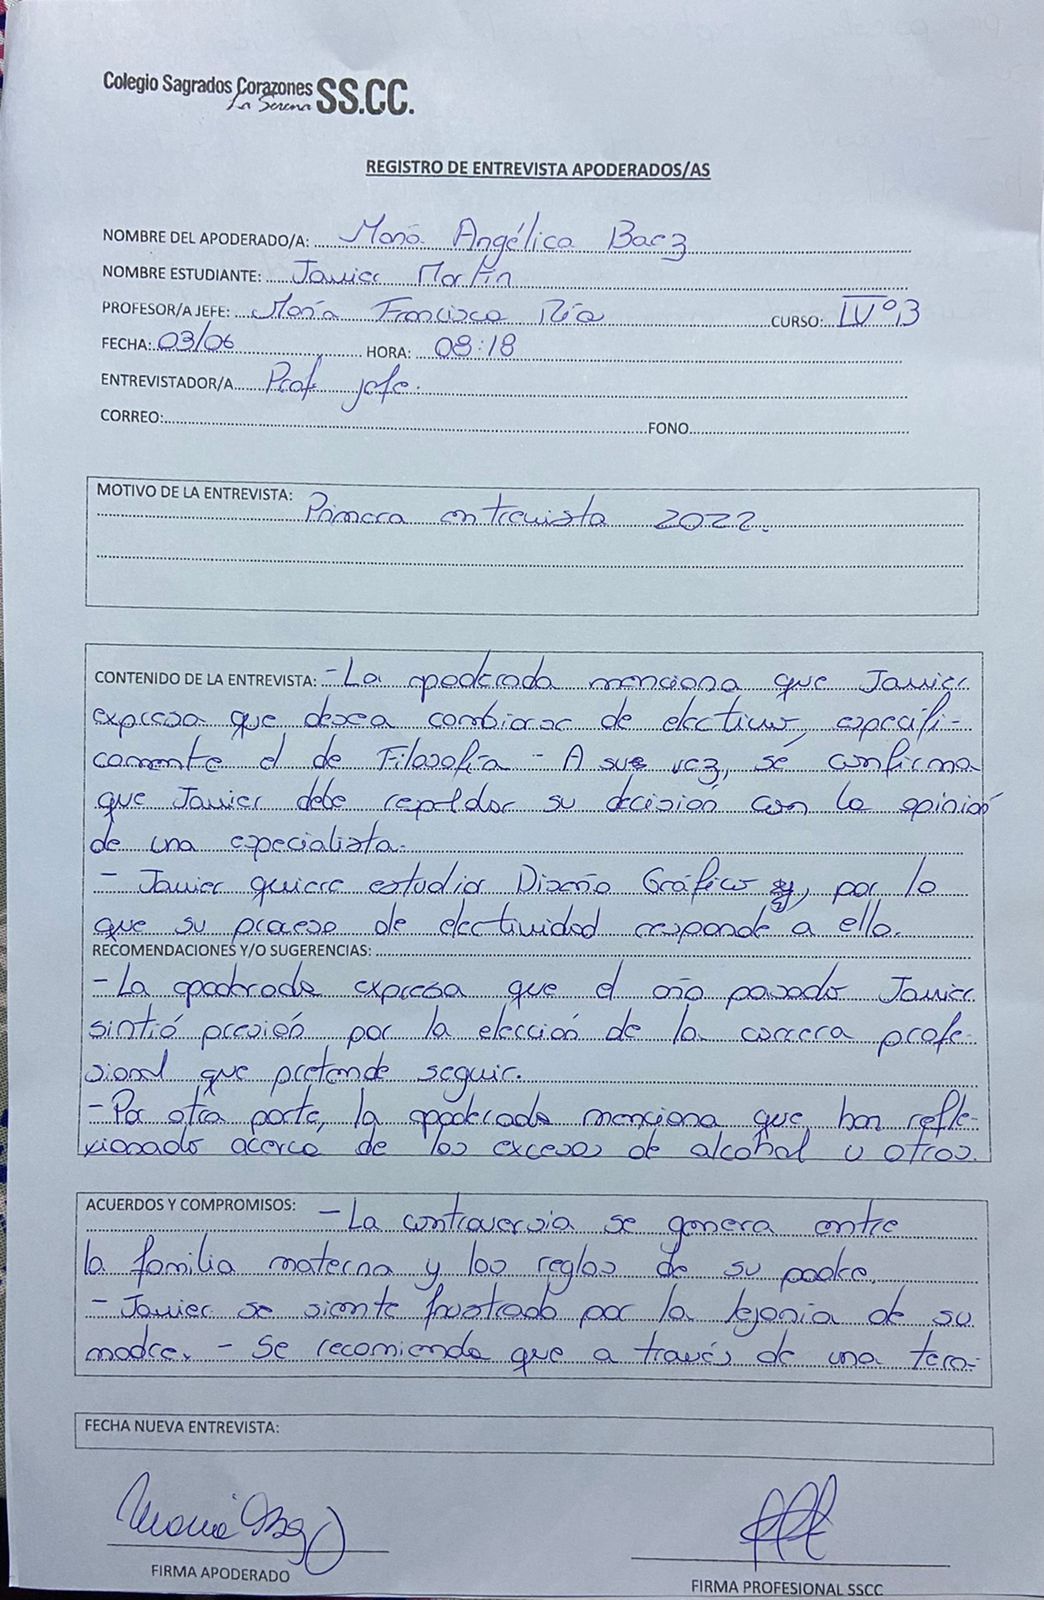 Colegio Sagrados Corazones SS.CC.
La Serena
REGISTRO DE ENTREVISTA APODERADOS/AS
NOMBRE DEL APODERADO/A: María Angélica Baez
NOMBRE ESTUDIANTE: Javier Martín
PROFESOR/A JEFE: María Francisca CURSO: IVº B
FECHA: 03/06 HORA: 08:18
ENTREVISTADOR/A Prof. jefe.
CORREO: FONO
MOTIVO DE LA ENTREVISTA: Primera entrevista 2022.
CONTENIDO DE LA ENTREVISTA: - La apoderada menciona que Javier
expresa que desea cambiarse de electivo, específi-
camente el de Filosofía - A sus vez, se confirma
que Javier debe repaldar su decisión con la opinión
de una especialista.
- Javier quiere estudiar Diseño Gráfico y, por lo
que su proceso de electividad responde a ello.
RECOMENDACIONES Y/O SUGERENCIAS:
- La apoderada expresa que el año pasado Javier
sintió presión por la elección de la carrera profe-
sional que pretende seguir.
- Por otra parte, la apoderada menciona que han refle-
xionado acerca de los excesos de alcohol u otros.
ACUERDOS Y COMPROMISOS: - La controversia se genera entre
la familia materna y las reglas de su padre.
- Javier se siente frustrado por la lejanía de su
madre. - Se recomienda que a través de una tera-
FECHA NUEVA ENTREVISTA:
FIRMA APODERADO
FIRMA PROFESIONAL SSCC